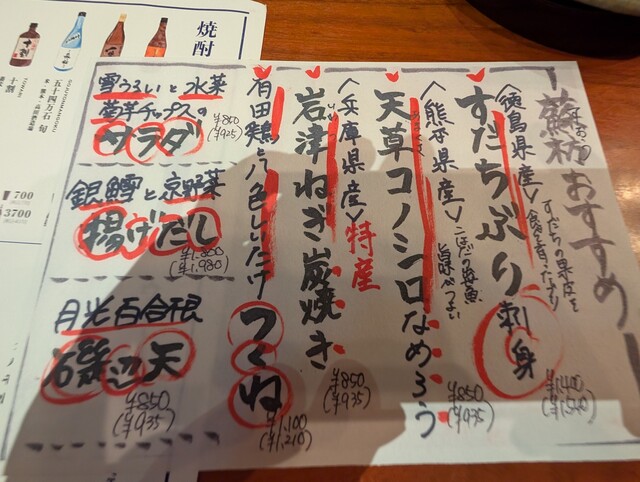 おすすめ
すだちの果皮を
〈徳島県産〉
すだちぶり刺身
¥1,400
(¥1,540)
〈熊本県産〉
天草コノシロなめろう
¥850
(¥935)
〈兵庫県産〉特産
岩津ねぎ炭焼き
¥850
(¥935)
有田鶏と八色しいたけ
つくね
¥1,100
(¥1,210)
雪うるいと水菜
菊芋チップスの
サラダ
¥850
(¥935)
銀鱈と京野菜
揚げだし
¥1,800
(¥1,980)
月光百合根
磯辺天
¥850
(¥935)
焼酎
五十四万石 旬
十割
700
3700